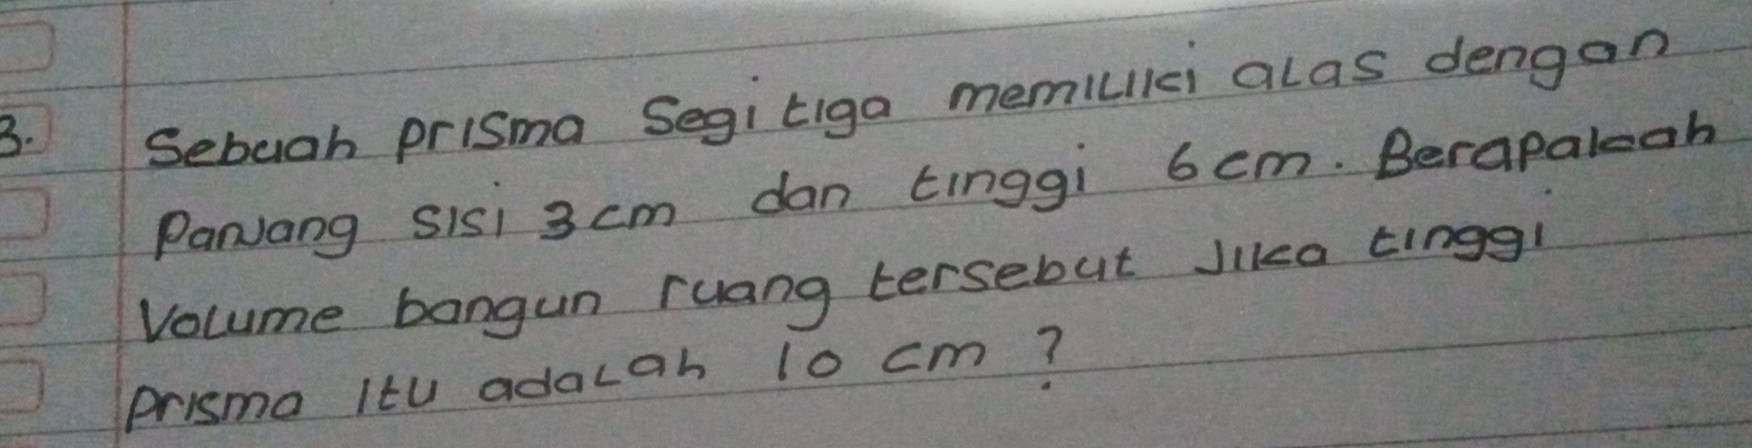 3. Sebuah prisma Segi tiga memiliki alas dengan
Panjang sisi 3 cm dan tinggi 6 cm. Berapakah
Volume bangun ruang tersebut Jika tinggi
prisma itu adalah 10 cm ?